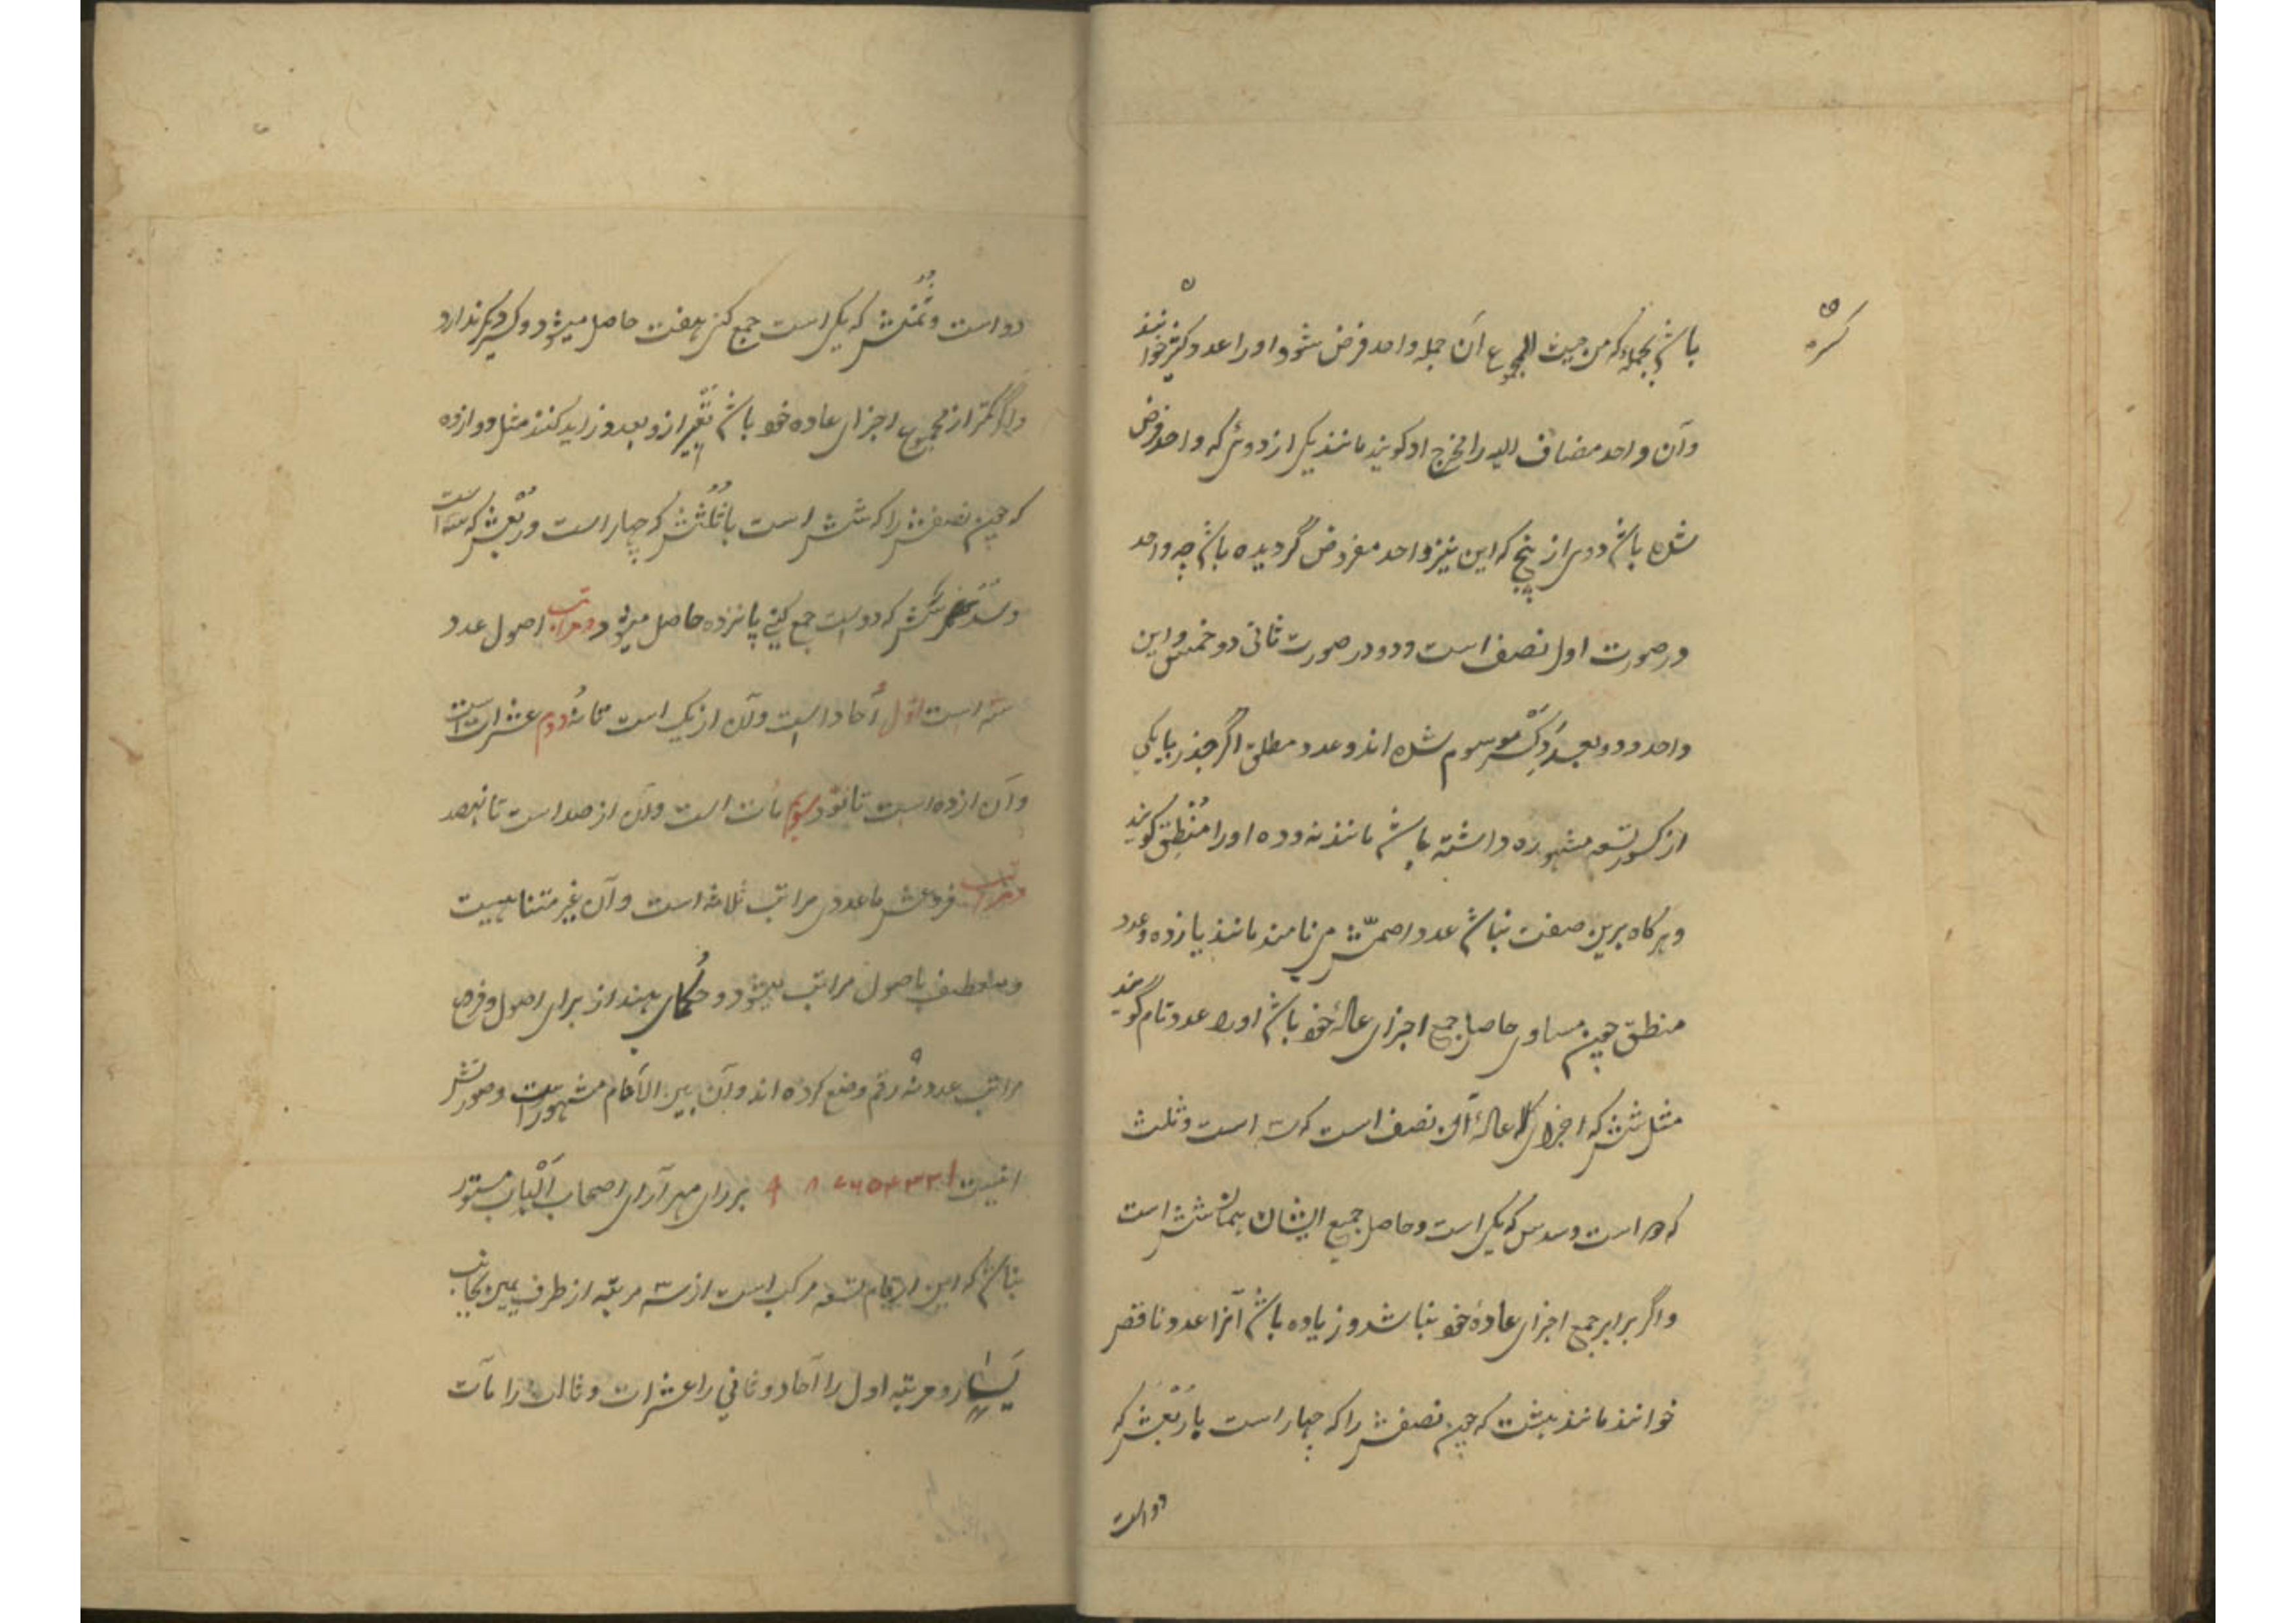 کسره
باشد بجمله که من حیث المجموع آن جمله واحد فرض شود او را عدد کسر خوانند
و آن واحد مضاف الیه را مخرج او گویند مانند یکی از دوئی که واحد فرض
شده باشد و دوی از پنج که این نیز واحد مفروض گردیده باشد چه واحد
در صورت اول نصف است و دو در صورت ثانی دو خمس و این
واحد و دو بعد و کسر موسوم شده اند و عدد مطلق اگر جذر یا یکی
از کسور تسعه مشهوره داشته باشد مانند نه و ده او را منطق گویند
و هرگاه برین صفت نباشد عدد اصمش می نامند مانند یازده و عدد
منطق چون مساوی حاصل جمع اجزای عادهٔ خود باشد او را عدد تام گویند
مثل شش که اجزای عادهٔ آن نصف است که سه است و ثلث
که دو است و سدس که یکی است و حاصل جمیع ایشان همان شش است
و اگر برابر جمع اجزای عادهٔ خود نباشد و زیاده باشد آنرا عدد ناقص
خوانند مانند هشت که چون نصفش را که چهار است با ربعش که
دو است
دو است و ثمنش که یکی است جمع کنی هفت حاصل میشود و کسر دیگر ندارد
و اگر کمتر از مجموع اجزای عاده خود باشد تعبیر ازو بعدد زاید کنند مثل دوازده
که چون نصفش را که شش است با ثلثش که چهار است و ربعش که سه است
و سدسش که دو است جمع کنی پانزده حاصل میشود و مراتب اصول عدد
سه است اول آحاد است و آن از یک است تا نه دوم عشرات است
و آن از ده است تا نود سیوم مآت است و آن از صد است تا نهصد
و مراتب فروعش ماعدای مراتب ثلاثه است و آن غیر متناهیست
و منعطف باصول مراتب میشود و حکمای هند از برای اصول و فرع
مراتب عدد نه رقم وضع کرده اند و آن بین الأنام مشهور است و صورتش
اینست ۱ ۲ ۳ ۴ ۵ ۶ ۷ ۸ ۹ بر رای مهر آرای اصحاب الْباب مستور
نباشد که این ارقام تسعه مرکب است از سه مرتبه از طرف یمین بجانب
یَسار و مرتبه اول را آحاد و ثانی را عشرات و ثالث را مآت